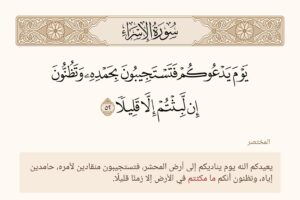 سُورَةُ الإِسْرَاءِ
يَوْمَ يَدْعُوكُمْ فَتَسْتَجِيبُونَ بِحَمْدِهِۦ وَتَظُنُّونَ
إِن لَّبِثْتُمْ إِلَّا قَلِيلًا ٥٢
المختصر
يعيدكم الله يوم يناديكم إلى أرض المحشر، فتستجيبون منقادين لأمره، حامدين
إياه، وتظنون أنكم ما مكثتم في الأرض إلا زمنًا قليلًا.